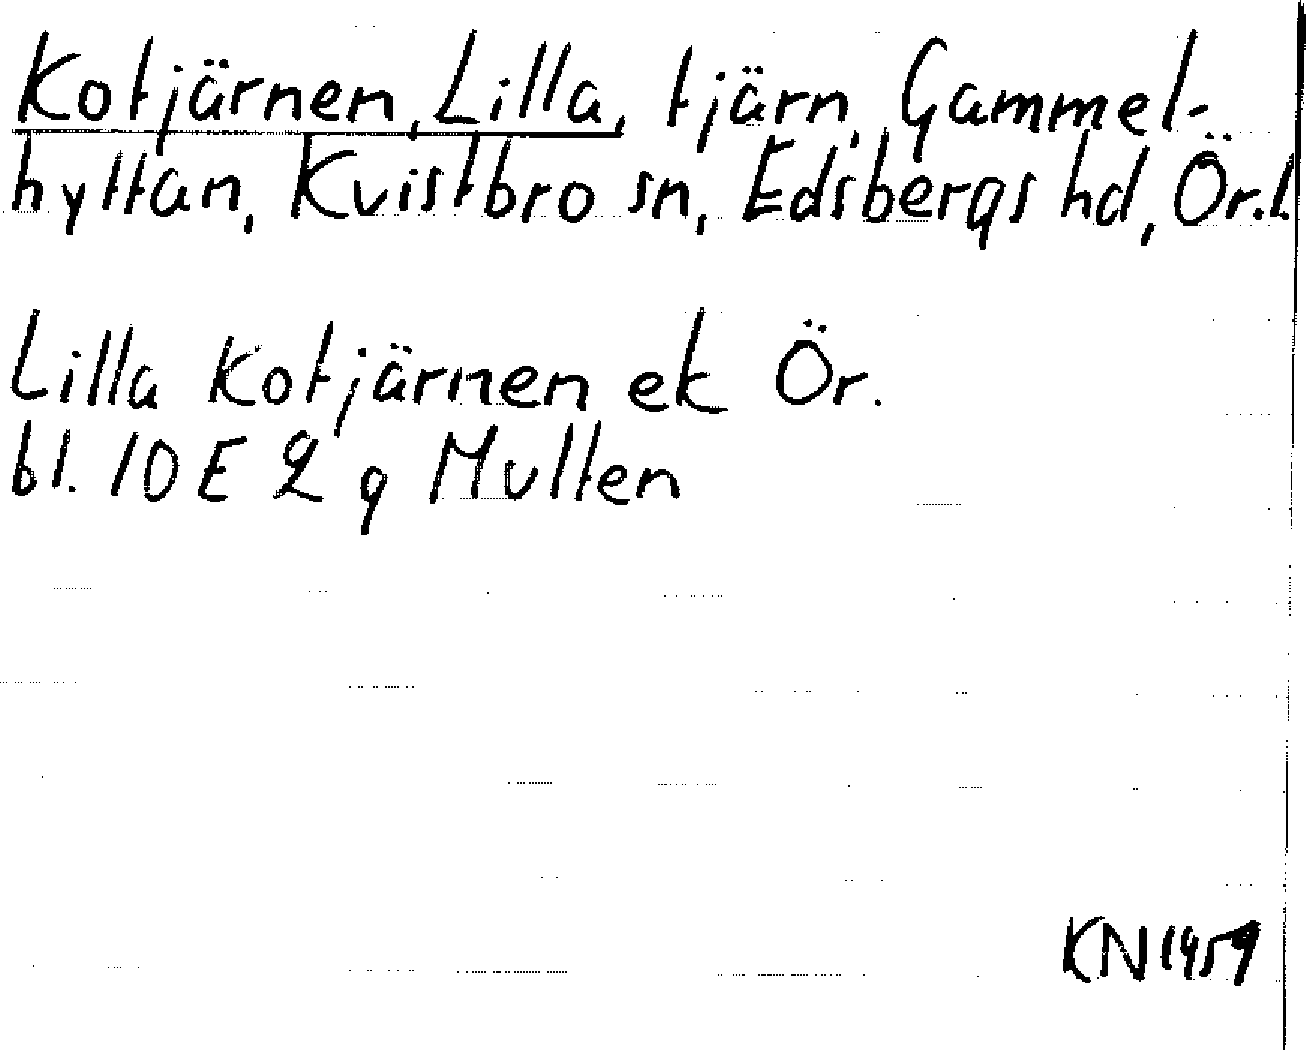 Kotjärnen, Lilla, tjärn, Gammel-
hyttan, Kvistbro sn, Edsbergs hd, Ör.l.
Lilla Kotjärnen ek Ör.
bl. 10 E 2 g Multen
KN 1959